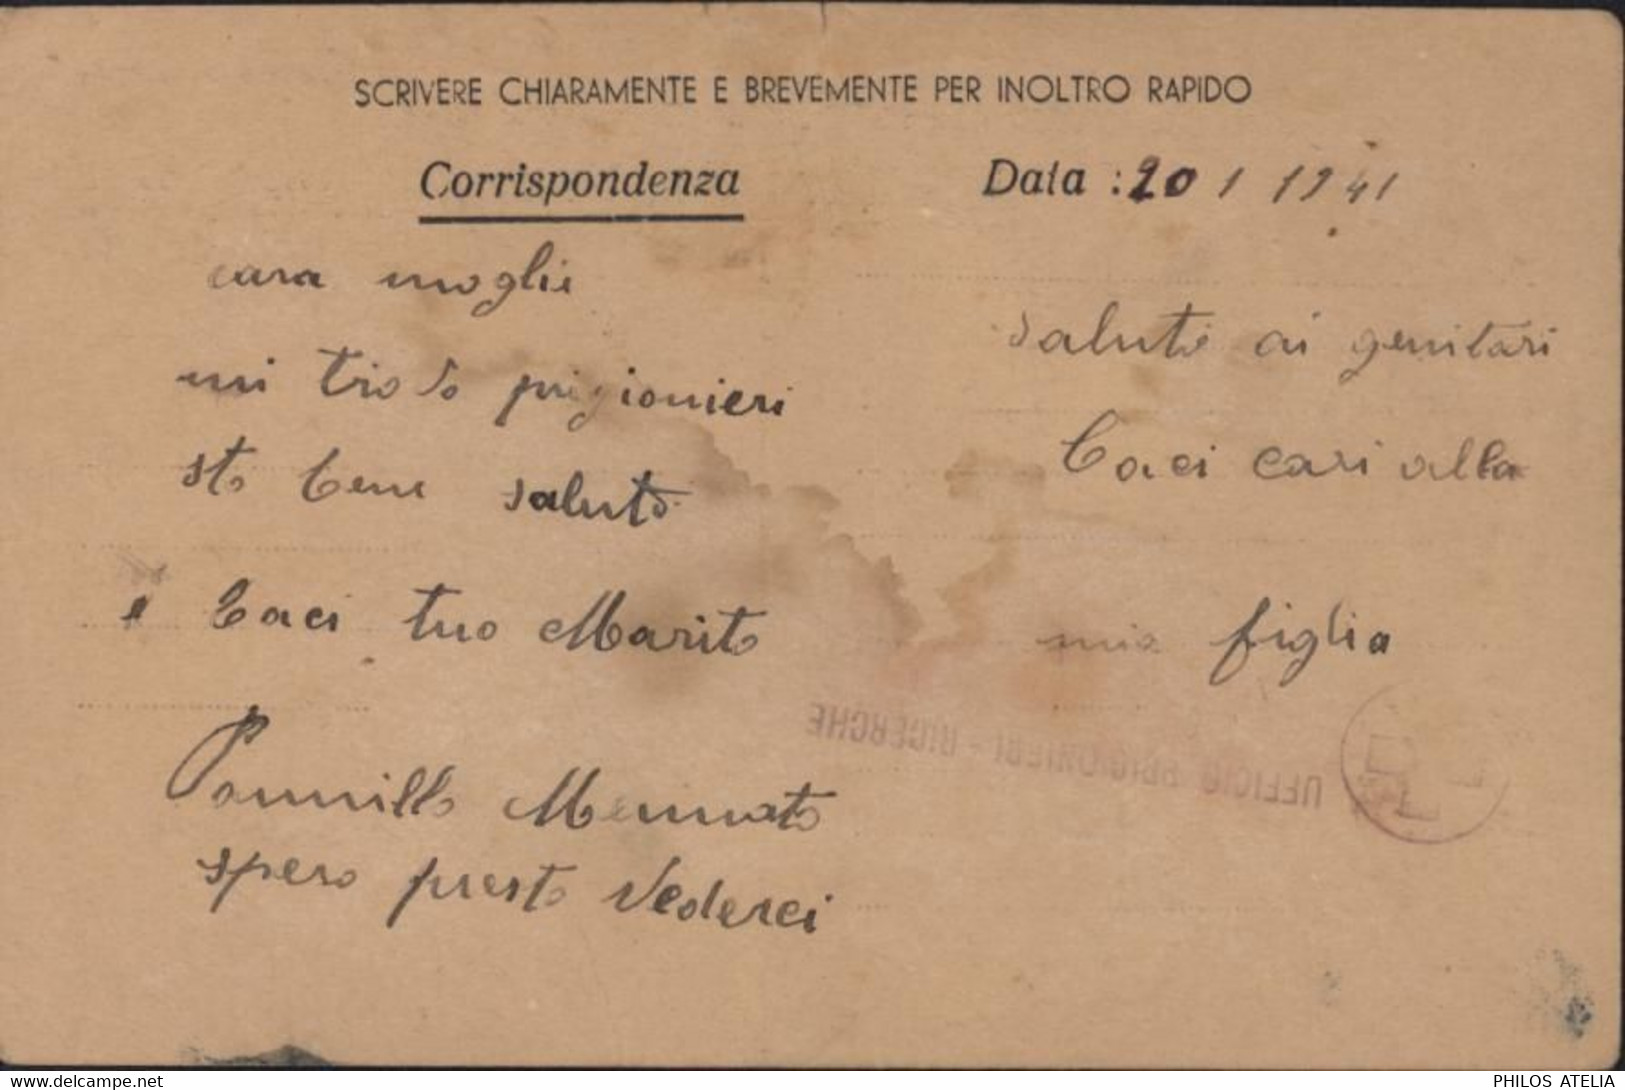 SCRIVERE CHIARAMENTE E BREVEMENTE PER INOLTRO RAPIDO
Corrispondenza
Data : 20 1 1941
cara moglie
mi trovo prigionieri
sto bene saluto
e baci tuo Marito
Pannillo Mennato
spero presto Vederci
saluti ai genitori
baci cari alla
mia figlia
UFFICIO PRIGIONIERI - RICERCHE
delcampe.net
PHILOS ATELIA